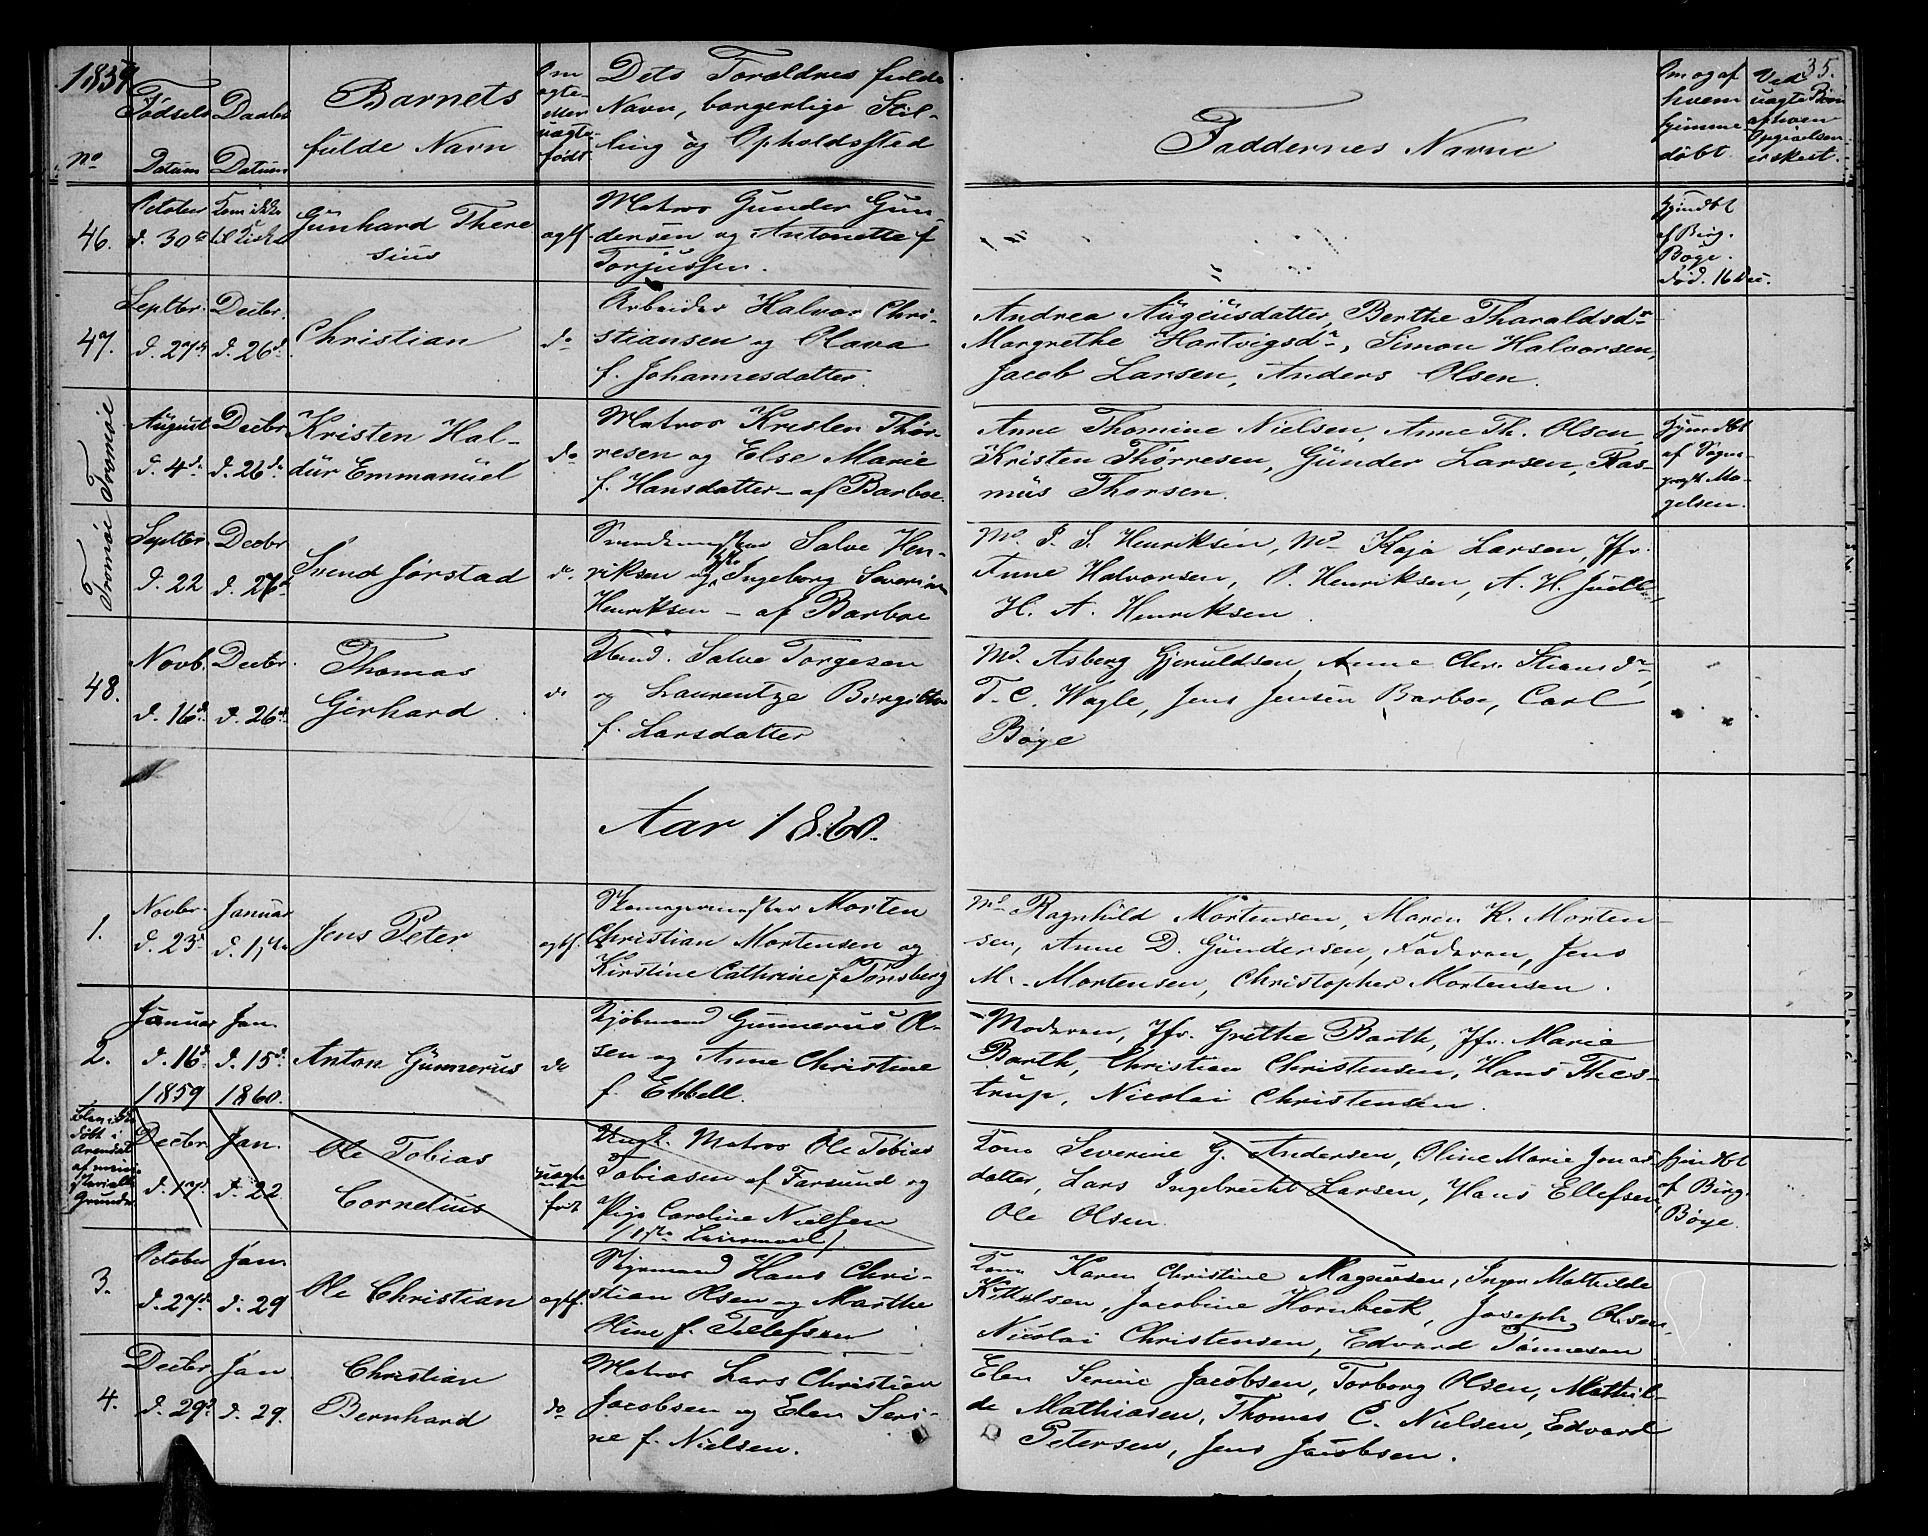 1859
35.
Fødsels Daabs
Barnets
fulde Navn
Om
ægte-
eller
uægte-
født
Dets Forældres fulde
Navn, borgerlige Stil-
ling og Opholdssted
Faddernes Navne
Om og af
hvem
hjemme-
døbt.
Ved
uægte Børn
af hvem
Opgivelsen
er skeet.
No
Datum Datum
46.
October
d. 30te
Kom ikke
til Kirke
Gunhard There
sius
ægtf.
Matros Gunder Gun-
dersen og Antonette f.
Torjussen.
Hjmdbt
af Birg.
Bøge.
død. 16 Dec.
47.
Septbr. Decbr.
d. 27de d. 26d.
Christian
do
Arbeider Halvor Chri-
stiansen og Olava
f. Johannesdatter.
Andrea Augiusdatter, Berthe Tharaldsdr
Margrethe Hartvigsdr, Simon Halvorsen,
Jacob Larsen, Anders Olsen.
Tromøe
August Decbr
d. 4de d. 26de
Kristen Hal-
dur Emmanuel
do
Matros Kristen Thor-
resen og Else Marie
f. Hansdatter - af Barboe.
Anne Thomine Nielsen, Anne Th. Olsen,
Kristen Thørresen, Gunder Larsen, Ras-
mus Thorsen.
Hjmdbt
af Sogne-
præst Mo-
gelsen.
Tromøe
Septbr. Decbr
d. 22 d. 27d
Svend Jørstad
do.
Salve Hen-
riksen og Ingeborg Severine
Henriksen - af Barboe
Md. P. S. Henriksen, Md. Kaja Larsen, Jfr.
Anne Halvorsen, O. Henriksen, A. H. Juell,
H. A. Henriksen
48.
Novb. Decbr.
d. 16d. d. 26d.
Thomas
Gerhard.
do
Salve Torgesen
og Laurentze Birgitte
f. Larsdatter
Md. Asberg Gjeruldsen Anne Chr. Stiansdr,
T. C. Wagle, Jens Jensen Barboe, Carl
Bøge
Aar 1860.
1.
Novbr. Januar
d. 23d d. 1ste
Jens Peter
ægtf.
Skomagermester Morten
Christian Mortensen og
Kirstine Cathrine f. Tønsberg
Md. Ragnhild Mortensen, Maren K. Morten-
sen, Anne D. Gundersen, Faderen, Jens
M. Mortensen, Christopher Mortensen.
2.
Januar Jan.
d. 16d. d. 15d.
1859 1860.
Anton Gunnerus
do
Kjøbmand Gunnerus Ol-
sen og Anne Christine
f. Etbell.
Moderen, Jfr. Grethe Barth, Jfr. Marie
Barth, Christian Christensen, Hans Thes-
trup, Nicolai Christensen.
døbt i
Arendal
Grunde
Decbr Jan.
d. 17d d. 22
Ole Tobias
Cornelius
uægte
født
Ungk. Matros Ole Tobias
Tobiasen af Farsund og
Pige Caroline Nielsen
/1ste Leiermaal/.
Kone Severine G. Andersen, Oline Marie Jonas-
datter, Lars Ingebrecht Larsen, Hans Ellefsen,
Ole Olsen
hjmdbt
af Birg.
Bøye.
3.
October Jan.
d. 27d. d. 29
Ole Christian
ægtf.
Styrmand Hans Chri-
stian Olsen og Marthe
Oline f. Tellefsen
Kone Karen Christine Magnusen, Inger Mathilde
Kittelsen, Jacobine Hornbeck, Joseph Olsen,
Nicolai Christensen, Edvard Tønnesen
4.
Decbr Jan
d. 29d. d. 29.
Christian
Bernhard
do
Matros Lars Christian
Jacobsen og Elen Seri-
ne f. Nielsen.
Elen Serine Jacobsen, Torborg Olsen, Mathil-
de Mathiasen, Thomas C. Nielsen, Edvard
Petersen, Jens Jacobsen.